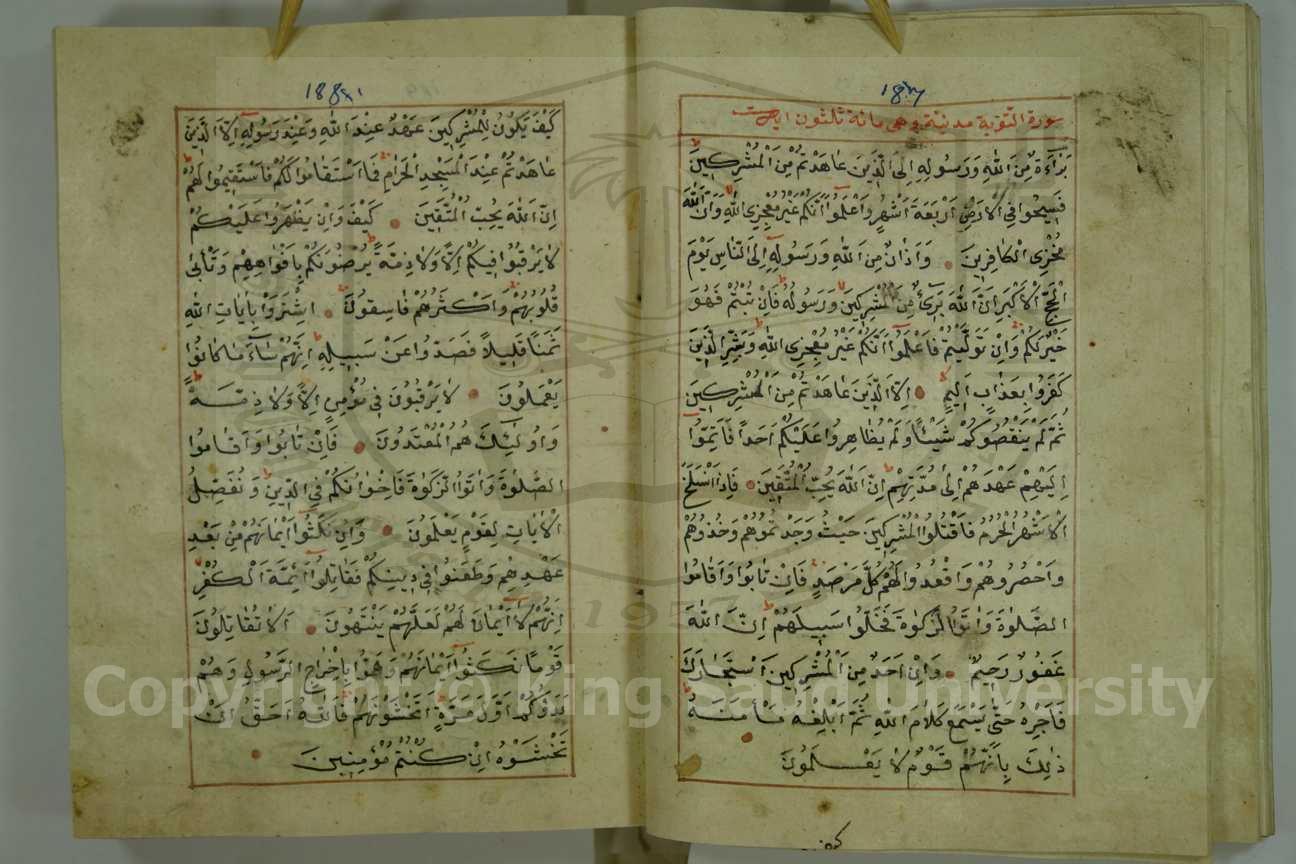 سورة التوبة مدنية وهي مائة ثلثون ايات
بَرَآءَةٌ مِنَ اللهِ وَرَسُولِهِ اِلَى الَّذِينَ عَاهَدْتُمْ مِنَ الْمُشْرِكِينَ
فَسِيحُوا فِي الْاَرْضِ اَرْبَعَةَ اَشْهُرٍ وَاعْلَمُوا اَنَّكُمْ غَيْرُ مُعْجِزِي اللهِ وَاَنَّ اللهَ
مُخْزِي الْكَافِرِينَ وَاَذَانٌ مِنَ اللهِ وَرَسُولِهِ اِلَى النَّاسِ يَوْمَ
الْحَجِّ الْاَكْبَرِ اِنَّ اللهَ بَرِئٌ مِنَ الْمُشْرِكِينَ وَرَسُولُهُ فَاِنْ تُبْتُمْ فَهُوَ
خَيْرٌ لَكُمْ وَاِنْ تَوَلَّيْتُمْ فَاعْلَمُوا اَنَّكُمْ غَيْرُ مُعْجِزِي اللهِ وَبَشِّرِ الَّذِينَ
كَفَرُوا بِعَذَابٍ اَلِيمٍ اِلَّا الَّذِينَ عَاهَدْتُمْ مِنَ الْمُشْرِكِينَ
ثُمَّ لَمْ يَنْقُصُوكُمْ شَيْئًا وَلَمْ يُظَاهِرُوا عَلَيْكُمْ اَحَدًا فَاَتِمُّوا
اِلَيْهِمْ عَهْدَهُمْ اِلَى مُدَّتِهِمْ اِنَّ اللهَ يُحِبُّ الْمُتَّقِينَ فَاِذَا انْسَلَخَ
الْاَشْهُرُ الْحُرُمُ فَاقْتُلُوا الْمُشْرِكِينَ حَيْثُ وَجَدْتُمُوهُمْ وَخُذُوهُمْ
وَاحْصُرُوهُمْ وَاقْعُدُوا لَهُمْ كُلَّ مَرْصَدٍ فَاِنْ تَابُوا وَاَقَامُوا
الصَّلٰوةَ وَاٰتَوُا الزَّكٰوةَ فَخَلُّوا سَبِيلَهُمْ اِنَّ اللهَ
غَفُورٌ رَحِيمٌ وَاِنْ اَحَدٌ مِنَ الْمُشْرِكِينَ اسْتَجَارَكَ
فَاَجِرْهُ حَتَّى يَسْمَعَ كَلَامَ اللهِ ثُمَّ اَبْلِغْهُ مَأْمَنَهُ
ذٰلِكَ بِاَنَّهُمْ قَوْمٌ لَا يَعْلَمُونَ
كيف
كَيْفَ يَكُونُ لِلْمُشْرِكِينَ عَهْدٌ عِنْدَ اللهِ وَعِنْدَ رَسُولِهِ اِلَّا الَّذِينَ
عَاهَدْتُمْ عِنْدَ الْمَسْجِدِ الْحَرَامِ فَمَا اسْتَقَامُوا لَكُمْ فَاسْتَقِيمُوا لَهُمْ
اِنَّ اللهَ يُحِبُّ الْمُتَّقِينَ كَيْفَ وَاِنْ يَظْهَرُوا عَلَيْكُمْ
لَا يَرْقُبُوا فِيكُمْ اِلًّا وَلَا ذِمَّةً يُرْضُونَكُمْ بِاَفْوَاهِهِمْ وَتَأْبَى
قُلُوبُهُمْ وَاَكْثَرُهُمْ فَاسِقُونَ اِشْتَرَوْا بِاٰيَاتِ اللهِ
ثَمَنًا قَلِيلًا فَصَدُّوا عَنْ سَبِيلِهِ اِنَّهُمْ سَآءَ مَا كَانُوا
يَعْمَلُونَ لَا يَرْقُبُونَ فِي مُؤْمِنٍ اِلًّا وَلَا ذِمَّةً
وَاُولٰئِكَ هُمُ الْمُعْتَدُونَ فَاِنْ تَابُوا وَاَقَامُوا
الصَّلٰوةَ وَاٰتَوُا الزَّكٰوةَ فَاِخْوَانُكُمْ فِي الدِّينِ وَنُفَصِّلُ
الْاٰيَاتِ لِقَوْمٍ يَعْلَمُونَ وَاِنْ نَكَثُوا اَيْمَانَهُمْ مِنْ بَعْدِ
عَهْدِهِمْ وَطَعَنُوا فِي دِينِكُمْ فَقَاتِلُوا اَئِمَّةَ الْكُفْرِ
اِنَّهُمْ لَا اَيْمَانَ لَهُمْ لَعَلَّهُمْ يَنْتَهُونَ اَلَا تُقَاتِلُونَ
قَوْمًا نَكَثُوا اَيْمَانَهُمْ وَهَمُّوا بِاِخْرَاجِ الرَّسُولِ وَهُمْ
بَدَؤُكُمْ اَوَّلَ مَرَّةٍ اَتَخْشَوْنَهُمْ فَاللهُ اَحَقُّ اَنْ
تَخْشَوْهُ اِنْ كُنْتُمْ مُؤْمِنِينَ
Copyright © King Saud University
1957